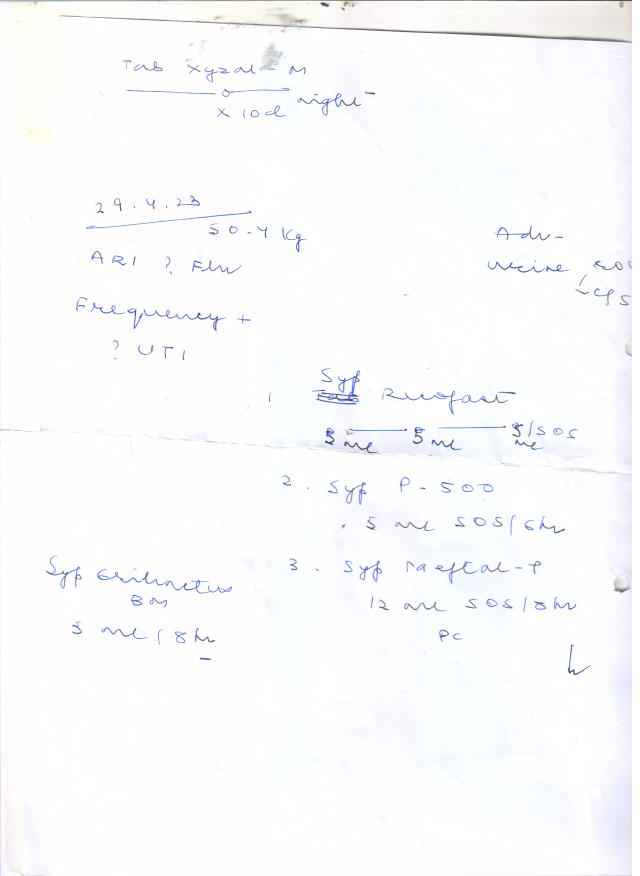 Tab Xyzal-M
night
x 10d
29.4.23
50.4 Kg
ARI ? Flu
Adv-
Urine
Frequency +
? UTI
1 Syp
5 ml 5 ml 5/SOS
ml
2. Syp P-500
5 ml SOS/6hr
3. Syp Meftal-P
12 ml SOS/8hr
PC
Syp
BM
5 ml / 8hr